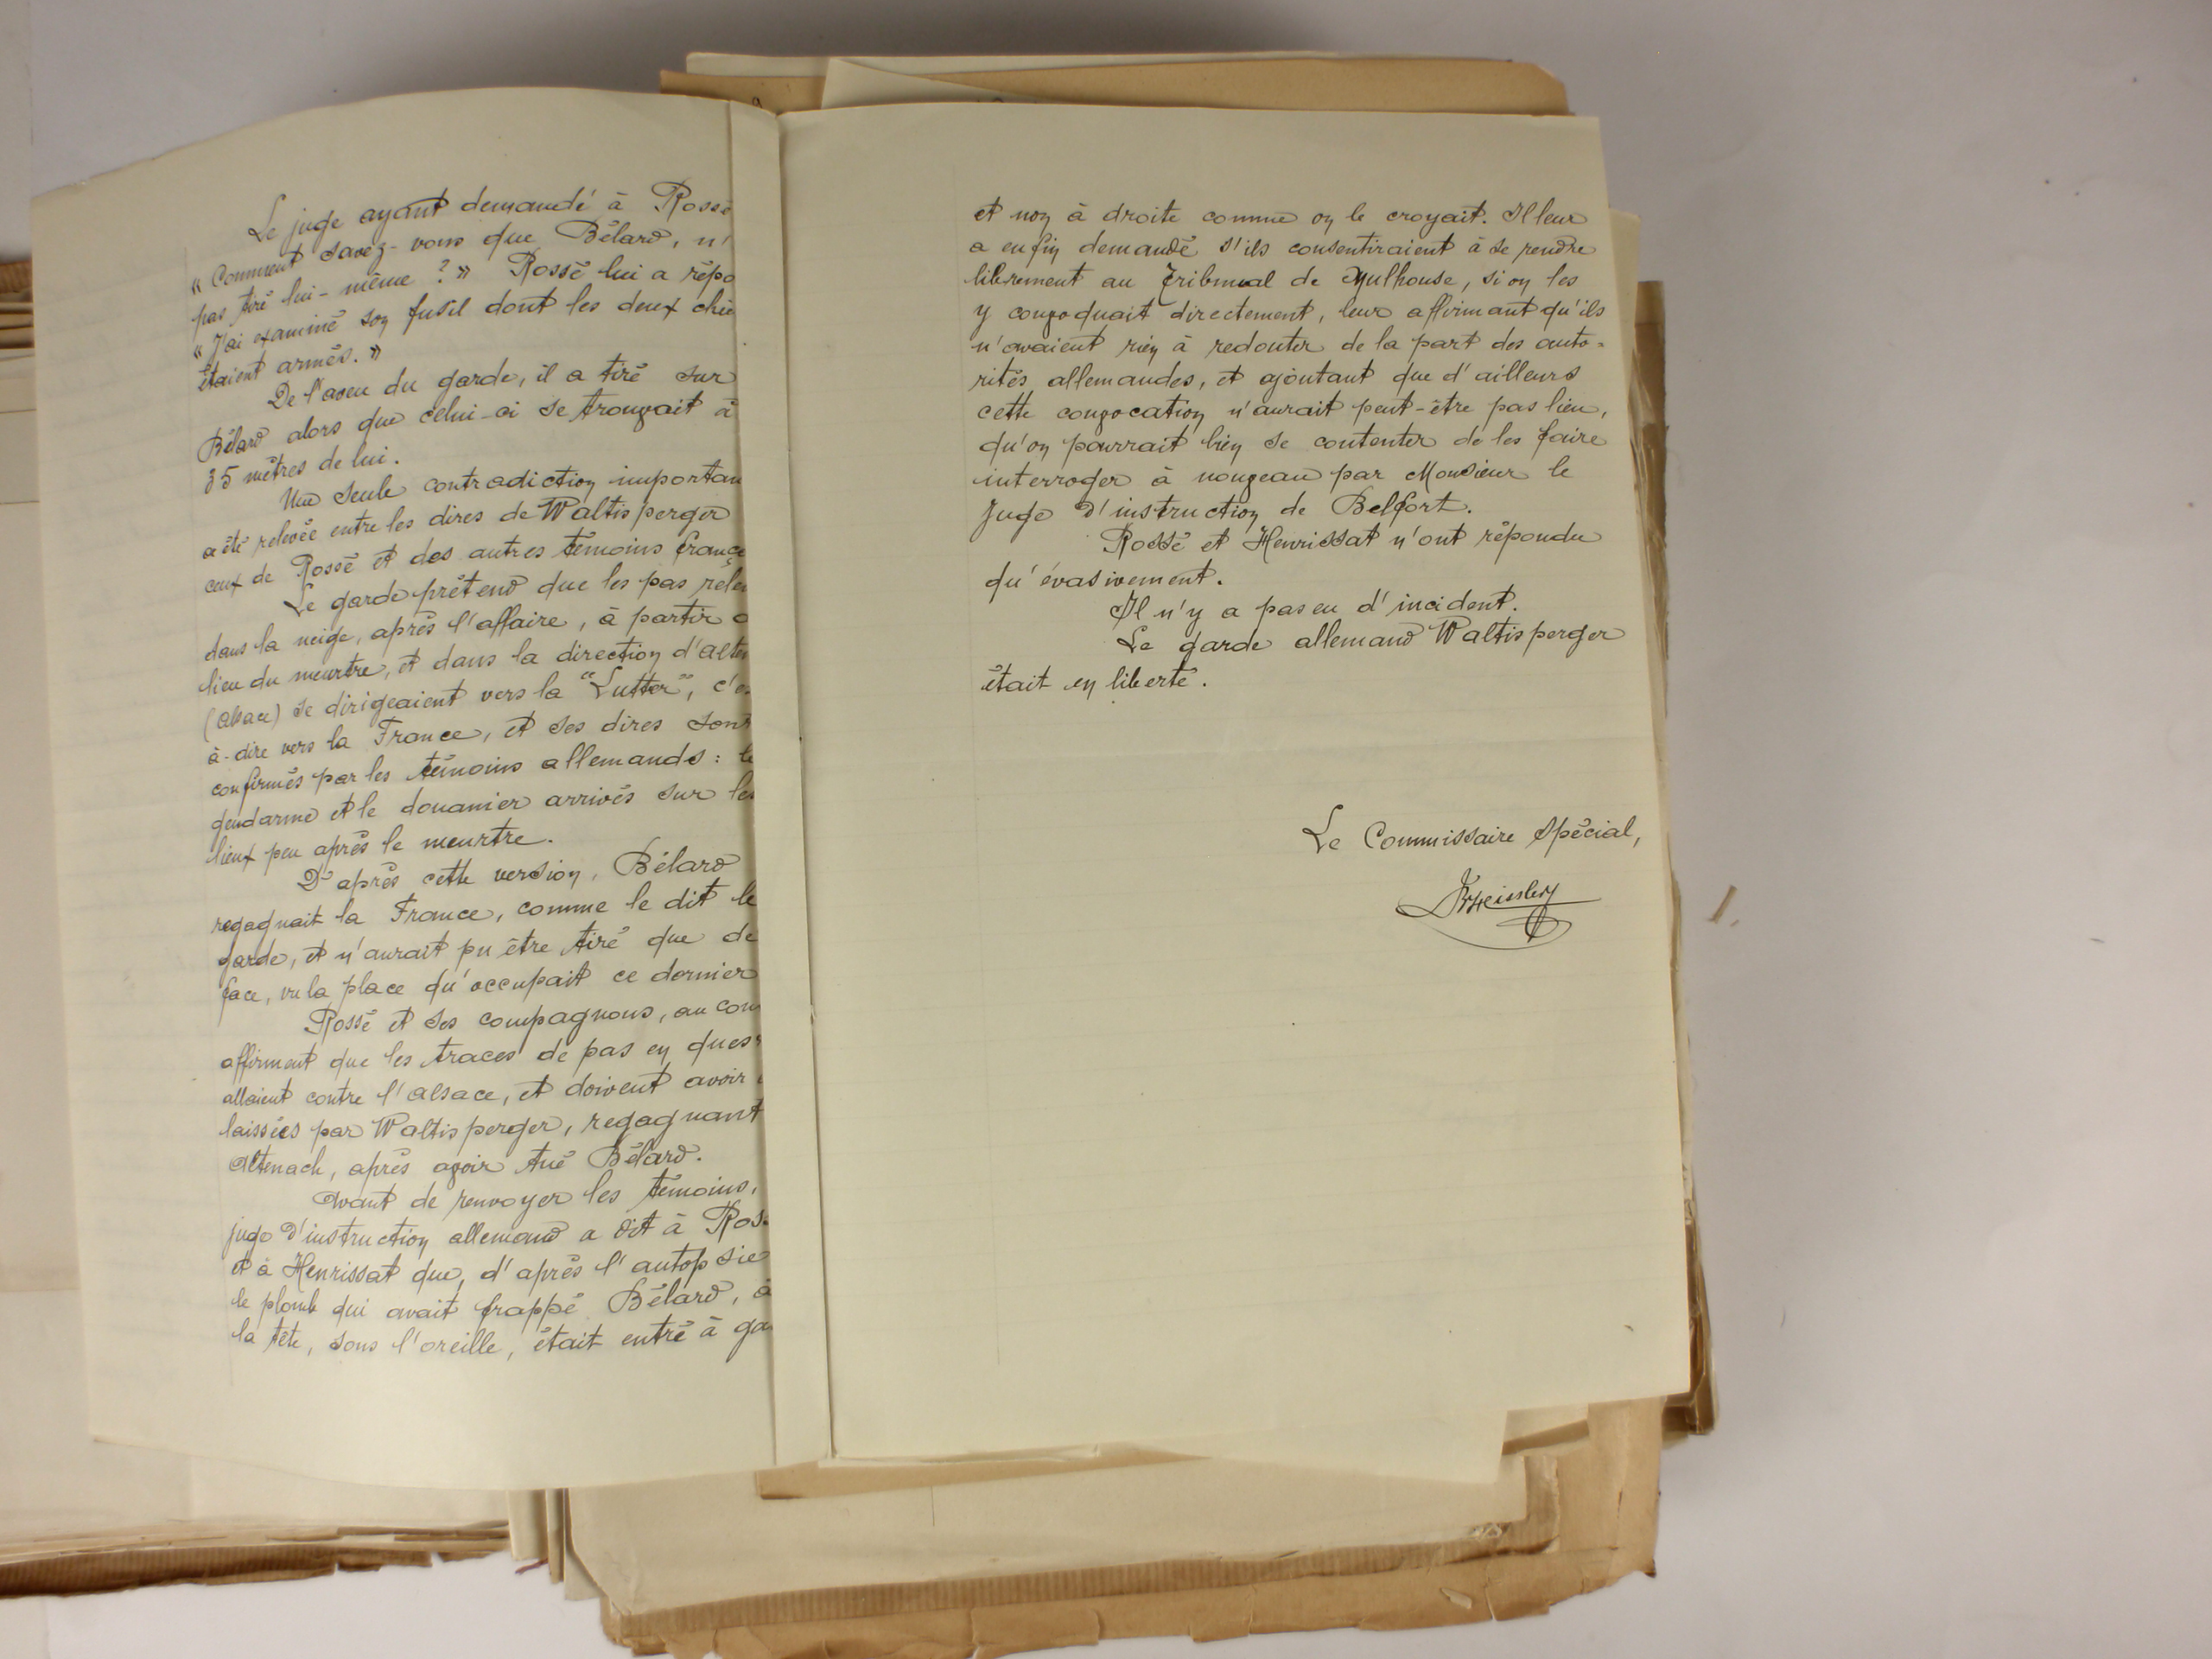 Le juge ayant demandé à Rossé
« Comment savez-vous que Bélard, n'
pas tiré lui-même ? » Rossé lui a répo
« J'ai examiné son fusil dont les deux chie
étaient armés. »
De l'aveu du garde, il a tiré sur
Bélard alors que celui-ci se trouvait à
35 mètres de lui.
Une seule contradiction importan
a été relevée entre les dires de Waltisperger
ceux de Rossé et des autres témoins franç
Le garde prétend que les pas rele
dans la neige, après l'affaire, à partir
lieu du meurtre, et dans la direction d'Alten
(Alsace) se dirigeaient vers la "Lutter", c'es
à-dire vers la France, et ses dires sont
confirmés par les témoins allemands : le
gendarme et le douanier arrivés sur les
lieux peu après le meurtre.
D'après cette version, Bélard
regagnait la France, comme le dit le
garde, et n'aurait pu être tiré que de
face, vu la place qu'occupait ce dernier
Rossé et ses compagnons, au con
affirment que les traces de pas en ques
allaient contre l'Alsace, et doivent avoir
laissées par Waltisperger, regagnant
Altenach, après avoir tué Bélard.
Avant de renvoyer les témoins,
juge d'instruction allemand a dit à Ros
et à Henrissat que, d'après l'autopsie
le plomb qui avait frappé Bélard, à
la tête, sous l'oreille, était entré à ga
et non à droite comme on le croyait. Il leur
a enfin demandé s'ils consentiraient à se rendre
librement au Tribunal de Mulhouse, si on les
y convoquait directement, leur affirmant qu'ils
n'avaient rien à redouter de la part des auto=
rités allemandes, et ajoutant que d'ailleurs
cette convocation n'aurait peut-être pas lieu,
qu'on pourrait bien se contenter de les faire
interroger à nouveau par Monsieur le
Juge d'instruction de Belfort.
Rossé et Henrissat n'ont répondu
qu'évasivement.
Il n'y a pas eu d'incident.
Le garde allemand Waltisperger
était en liberté.
Le Commissaire Spécial,